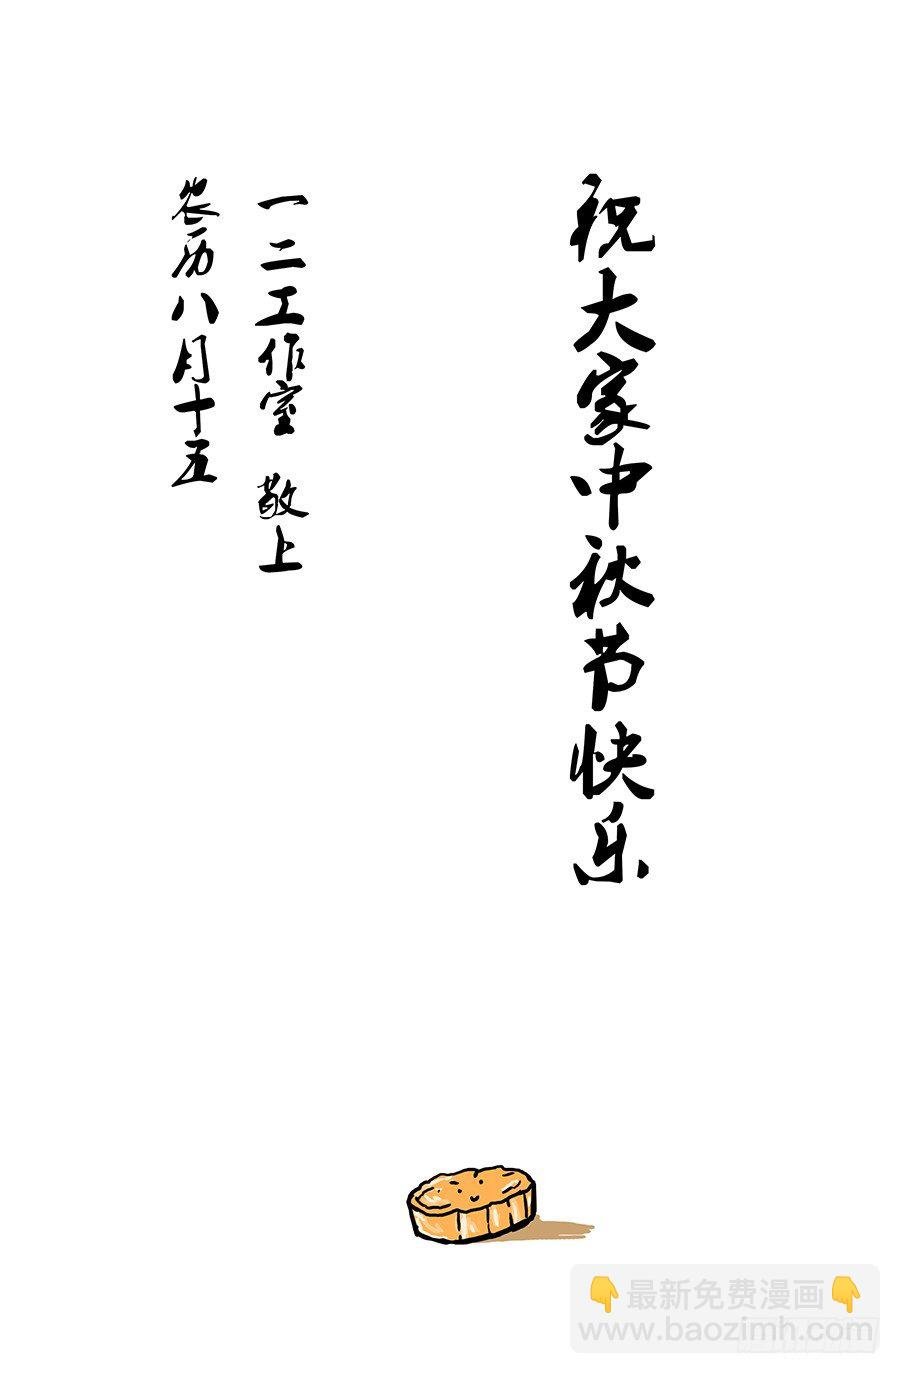 祝大家中秋节快乐
一二工作室 敬上
农历八月十五
👇最新免费漫画👇
www.baozimh.com